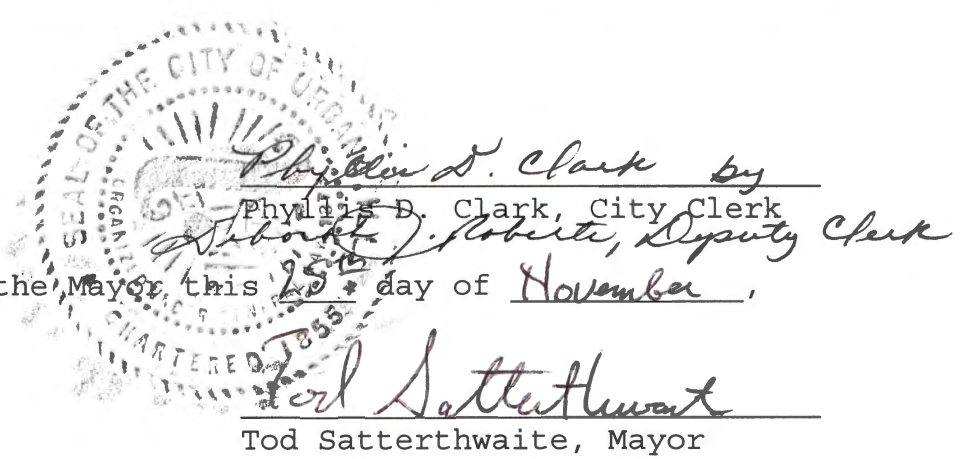 SEAL OF THE CITY OF URBANA
CHARTERED 1855
Phyllis D. Clark by
Phyllis D. Clark, City Clerk
Deborah J. Roberts, Deputy Clerk
the Mayor this 25th day of November,
Tod Satterthwaite
Tod Satterthwaite, Mayor